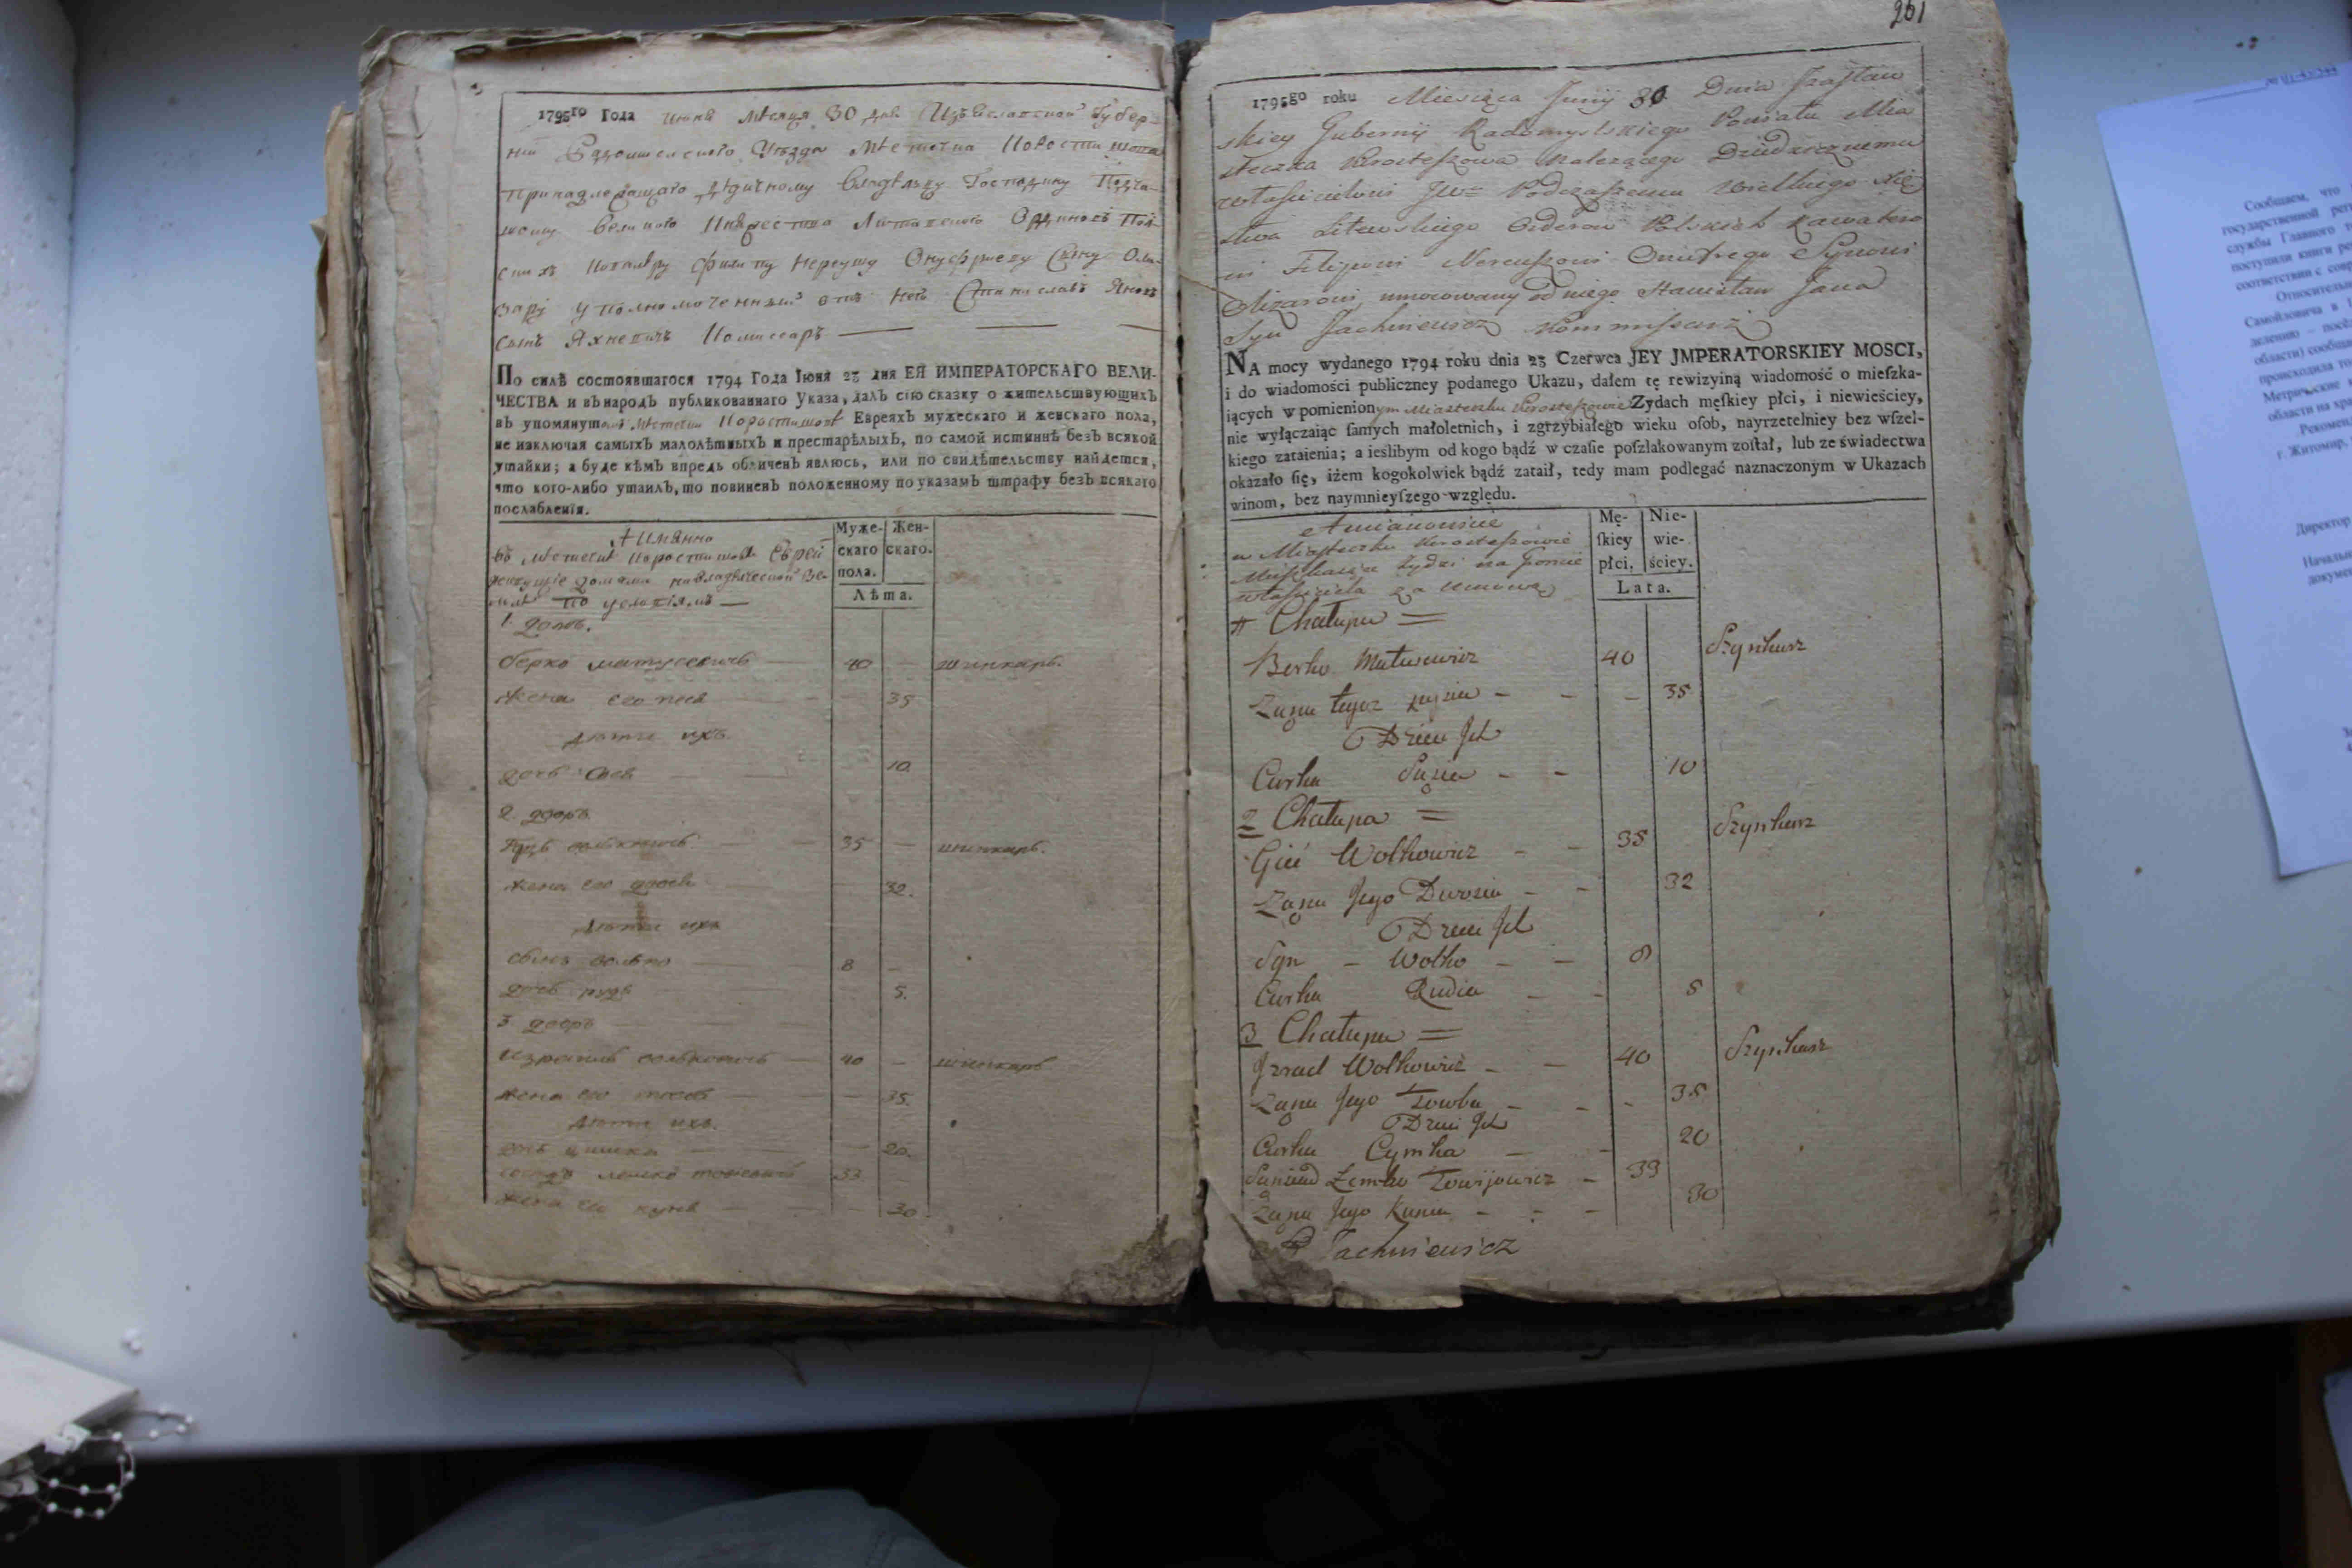 1795го Года Июня мѣсяца 30 дня Изъяславской Губер-
нїи Радомысльского Уѣзда мѣстечка Коростишова
принадлежащаго дѣдичному владѣльцу Господину Подча-
шому великого Княжества Литовского Ординовъ Пол-
скихъ Кавалеру Филипу Нереушу Онуфриеву Сыну Оли-
зару уполномоченный отъ него Станиславъ Яновъ
сынъ Яхневичъ Комиссаръ
По силѣ состоявшагося 1794 Года Іюня 23 дня ЕЯ ИМПЕРАТОРСКАГО ВЕЛИ-
ЧЕСТВА и въ народъ публикованнаго Указа, далъ сїю сказку о жительствующихъ
въ упомянутомъ мѣстечки Коростишовѣ Евреяхъ мужескаго и женскаго пола,
не изключая самыхъ малолѣтныхъ и престарѣлыхъ, по самой истиннѣ безъ всякой
утайки; а буде кѣмъ впредь обличенъ явлюсь, или по свидѣтельству найдется,
что кого-либо утаилъ, то повиненъ положенному по указамъ штрафу безъ всякаго
послабленїя.
А имянно
въ мѣстечкѣ Коростишовѣ Евреи
живущіе домами на владѣльческой зе-
млѣ по условіямъ
Муже-
скаго
пола.
Жен-
скаго.
Лѣта.
1. домъ.
берко матусевичъ 40 — шинкарь.
жена его песя 35
дѣти ихъ
дочь 10
2. дворъ
волковичъ 35 — шинкарь.
жена его двося 32.
дѣти ихъ
сынъ волько 8 —
дочь рудя 5.
3. дворъ
израиль вольковичъ 40 — шинкарь
жена его 35.
дѣти ихъ.
дочь цимка 20.
сосѣдъ лемко 33
жена его куня 30
261
1795go roku Miesiąca Junij 30 Dnia Izasław
skiey Gubernij Radomyslskiego Powiatu Mia
steczka Korosteszowa należącego Dziedzicznemu
własicielowi JW= Podczaszemu Wielkiego Xię
stwa Litewskiego Orderow Polskich Kawalero
wi Filipowi Nereuszowi Onufrego Synowi
Olizarowi, umocowany od niego Stanisław Jana
Syn Jachniewicz Kommissarz
NA mocy wydanego 1794 roku dnia 23 Czerwca JEY JMPERATORSKIEY MOSCI,
i do wiadomości publiczney podanego Ukazu, dałem tę rewizyiną wiadomość o mieſzka-
iących w pomienionym Miasteczku Korosteszowie Zydach męſkiey płci, i niewieściey,
nie wyłączaiąc ſamych małoletnich, i zgrzybiałego wieku oſob, nayrzetelniey bez wſzel-
kiego zataienia; a ieślibym od kogo bądź w czaſie poſzlakowanym zoſtał, lub ze świadectwa
okazało ſię, iżem kogokolwiek bądź zataił, tedy mam podlegać naznaczonym w Ukazach
winom, bez naymnieyſzego względu.
A mianowicie
w Miasteczku Korosteszowie
Mieszkaiące Zydzi na Gruncie
własiciela za umową
Mę-
ſkiey
płci,
Nie-
wie-
ściey.
Lata.
1 Chałupa =
Berko Matusewicz 40 Szynkarz
Żona tegoz — 35
Dzieci Jch
Curka Sosia 10
2 Chałupa =
Giec Wolkowicz 35 Szynkarz
Żona Jego Dwosia 32
Dzieci Jch
Syn Wolko 8
Curka Rudia 5
3 Chałupa =
Jzrael Wolkowicz 40 Szynkarz
Żona Jego Towba 35
Dzieci Jch
Curka Cymka 20
Sąsiad Lemko Towijowicz 33
Żona Jego Kunia 30
S Jachniewicz
Сообщаем, что
государственной
службы Главного
поступили книги
соответствии с
Относительно
Самойловича в
области) сообща
происходила
Метрические
области на хра
г. Житомир,
Директор
Начальн
докумен